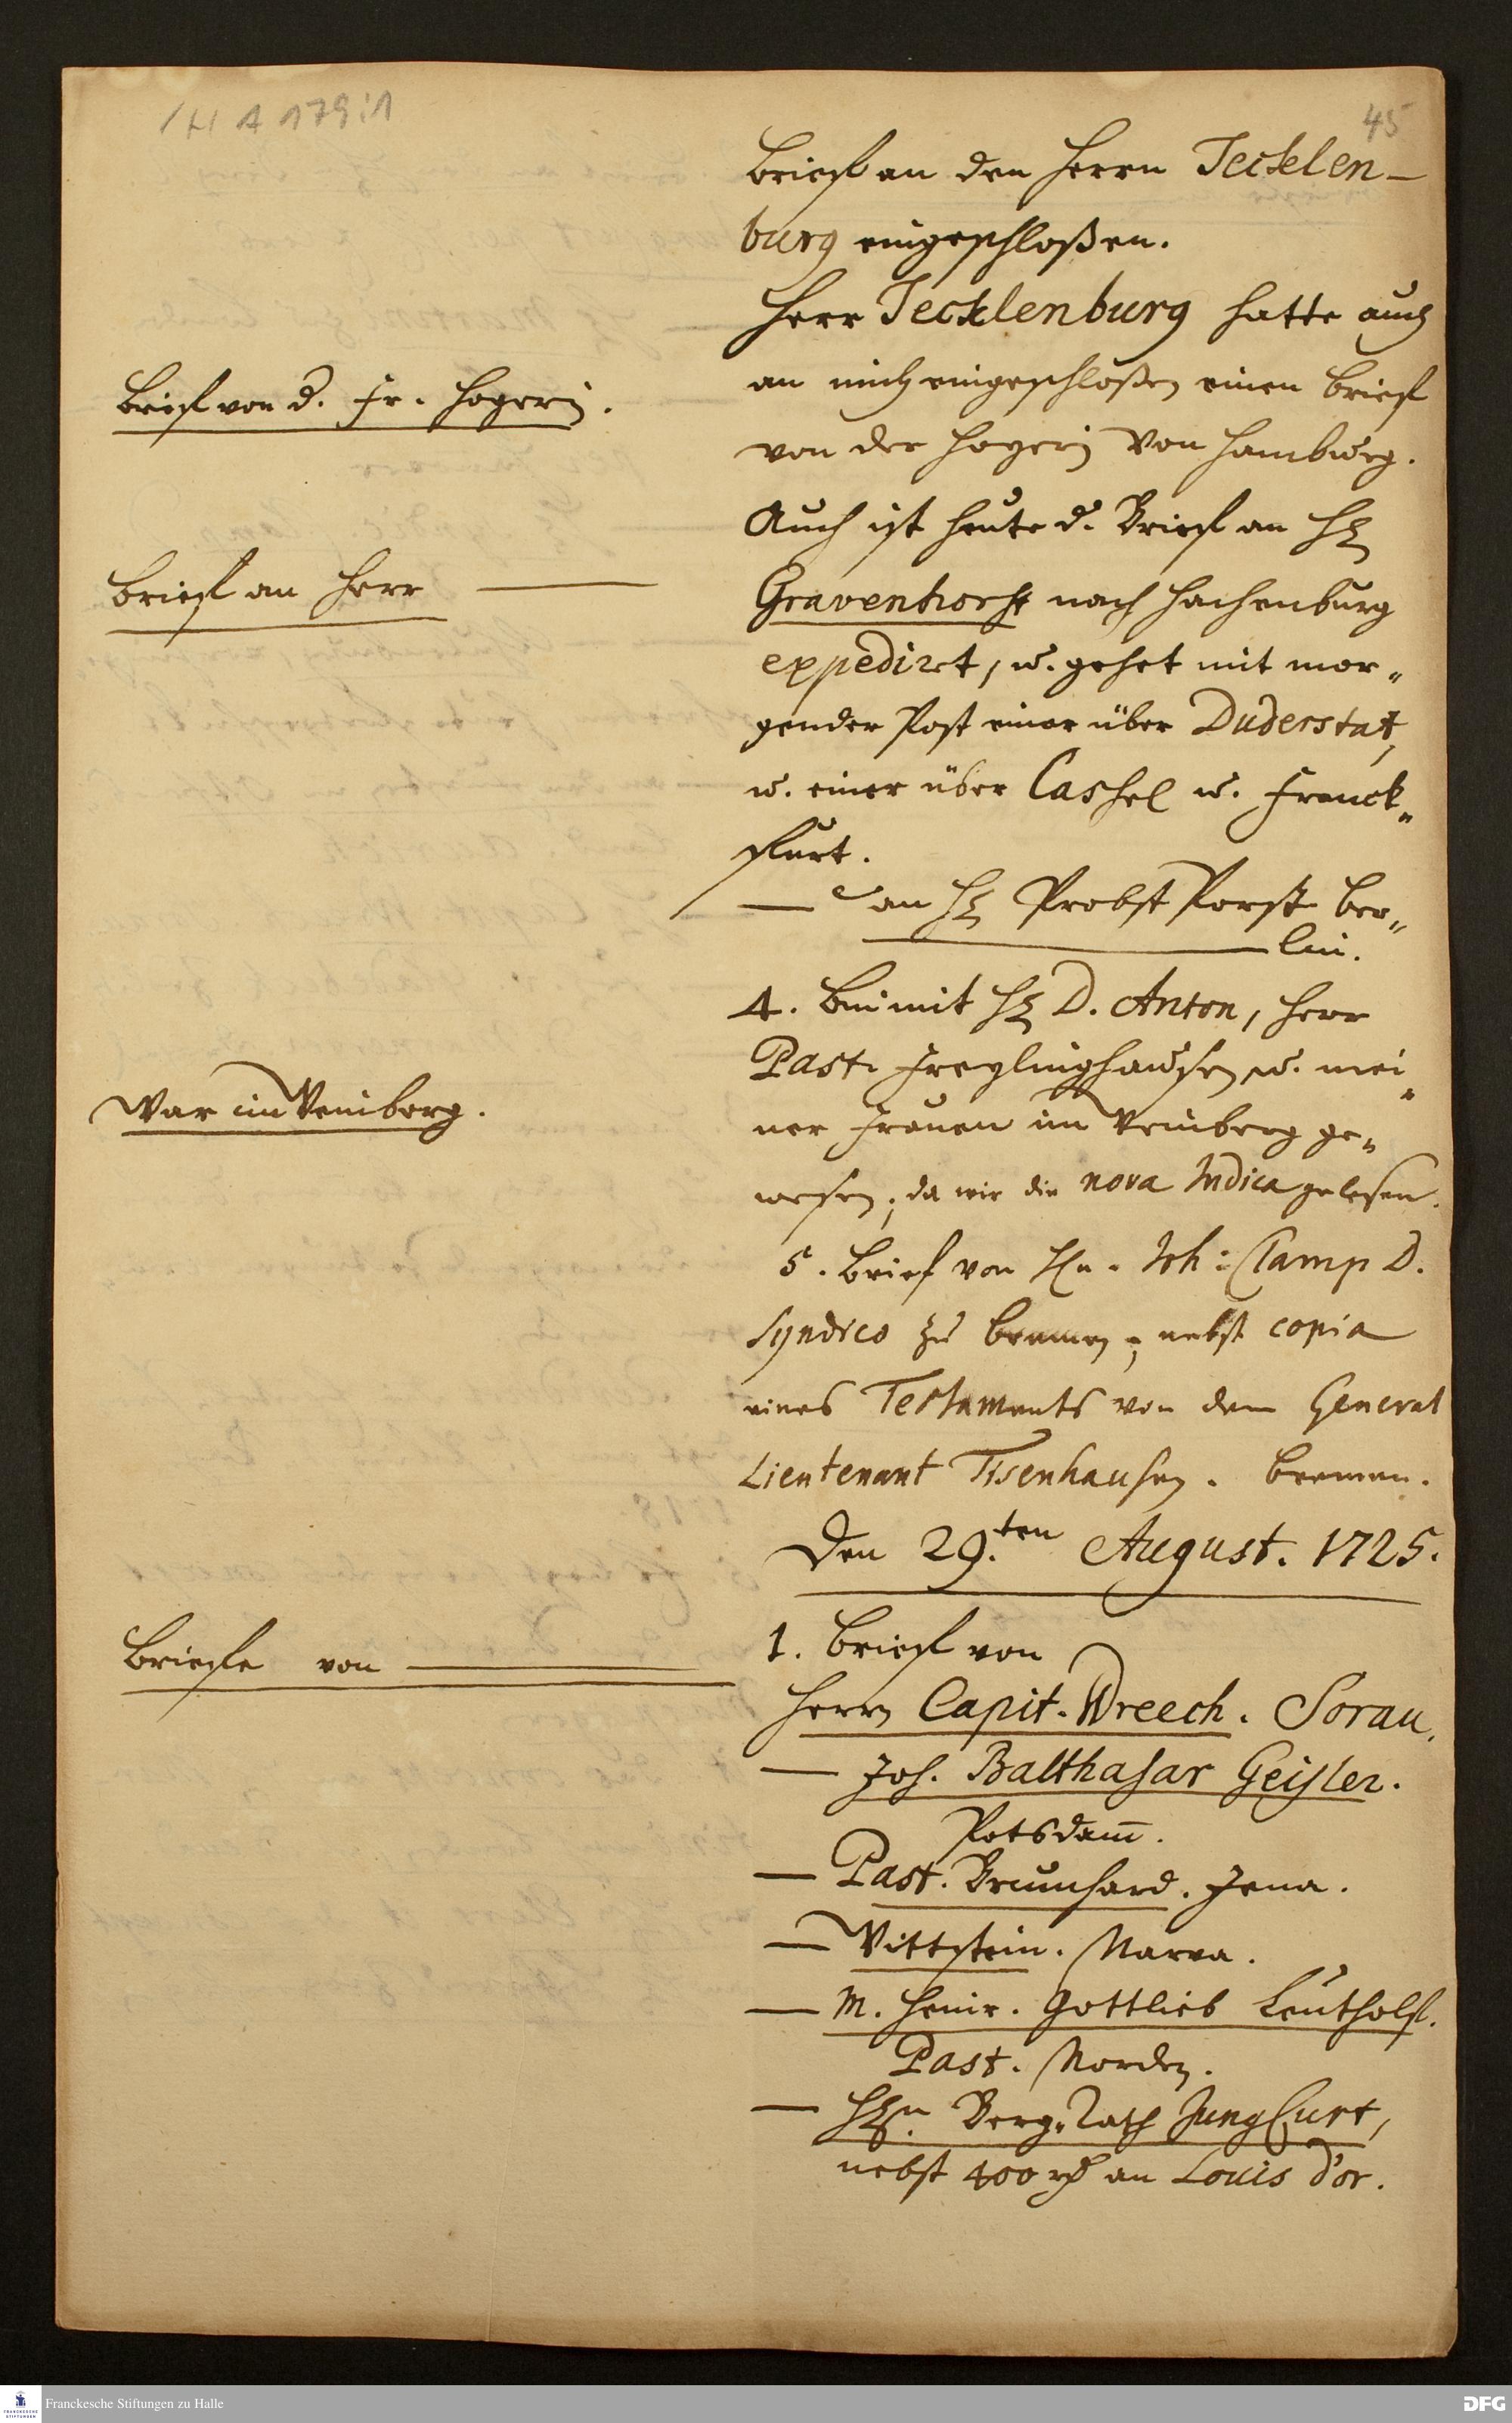 /H A 179:1
45
Brief an den Herrn Tecklen-
burg eingeschloßen.
Herr Tecklenburg hatte auch
an mich eingeschloßen einen Brief
von der Hoyerin von Hamburg.
Brief von d. Fr. Hoyerin.
Auch ist heute d. Brief an H.
Gravenhorst nach Hachenburg
expediret, u. gehet mit mor„
gender Post einer über Duderstat,
u. einer über Cassel u. Franck„
furt.
Brief an Herr ——
— an H. Probst Porst Ber„
lin.
4. Bin mit H. D. Anton, Herr
Past. Freylinghausen u. mei„
ner Frauen im Weinberg ge„
wesen; da wir die nova Indica gelesen.
War im Weinberg.
5. Brief von Hn. Joh: Clamp D.
Syndico zu Bremen, nebst copia
eines Testaments von dem General
Lieutenant Tisenhausen. Bremen.
Den 29.ten August. 1725.
Briefe von ——
1. Brief von
Herrn Capit. Wreech. Sorau.
— Joh. Balthasar Geisler.
Potsdam̅.
— Past. Brumhard. Jena.
— Wittstein. Narva.
— M. Heinr. Gottlieb Leutholf.
Past. Norden.
— Hn. Berg-Rath Jungcurt,
nebst 400 rth an Louis d'or.
Franckesche Stiftungen zu Halle
DFG